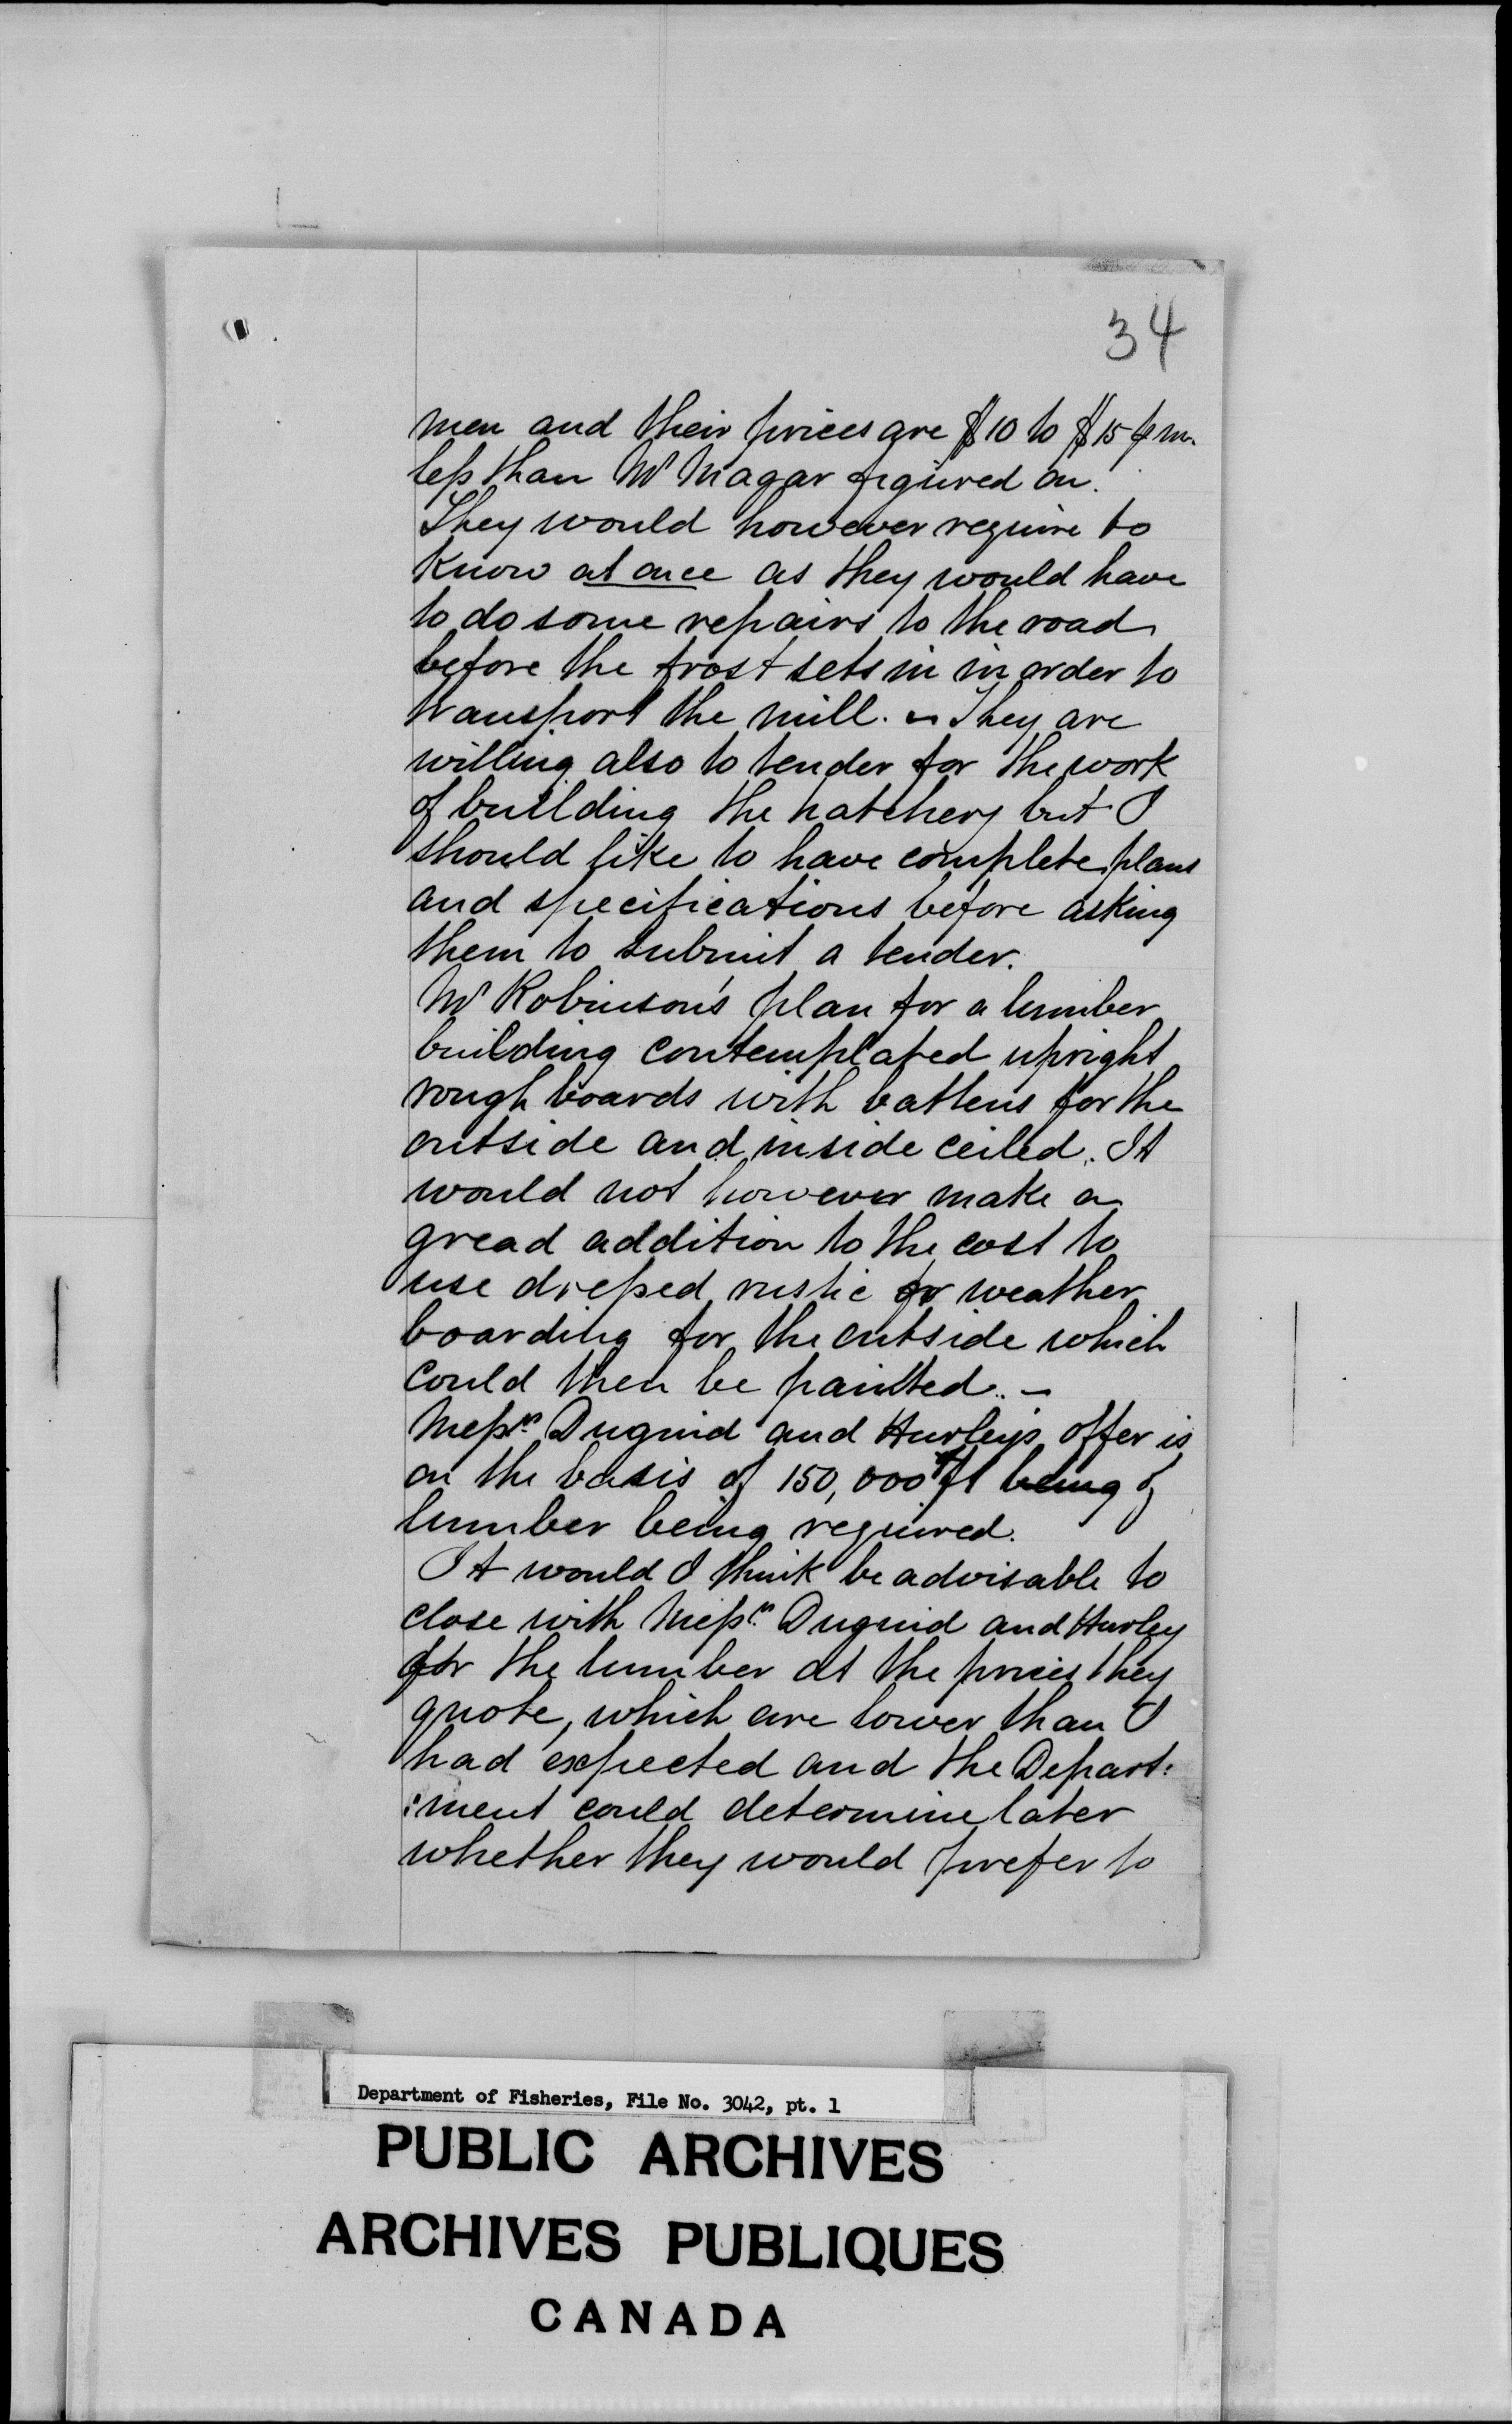 34
men and their prices are $10 to $15 p m.
less than Mr Magar figured on.
They would however require to
know at once as they would have
to do some repairs to the road
before the frost sets in in order to
transport the mill. – They are
willing also to tender for the work
of building the hatchery but I
should like to have complete plans
and specifications before asking
them to submit a tender.
Mr Robinson's plan for a lumber
building contemplated upright
rough boards with battens for the
outside and inside ceiled. It
would not however make a
gread addition to the cost to
use dressed rustic or weather
boarding for the outside which
could then be painted. –
Messrs Duguid and Hurley's offer is
on the basis of 150,000 ft being of
lumber being required.
It would I think be advisable to
close with Messrs. Duguid and Hurley
for the lumber at the prices they
quote, which are lower than I
had expected and the Depart:
:ment could determine later
whether they would prefer to
Department of Fisheries, File No. 3042, pt. 1
PUBLIC ARCHIVES
ARCHIVES PUBLIQUES
CANADA